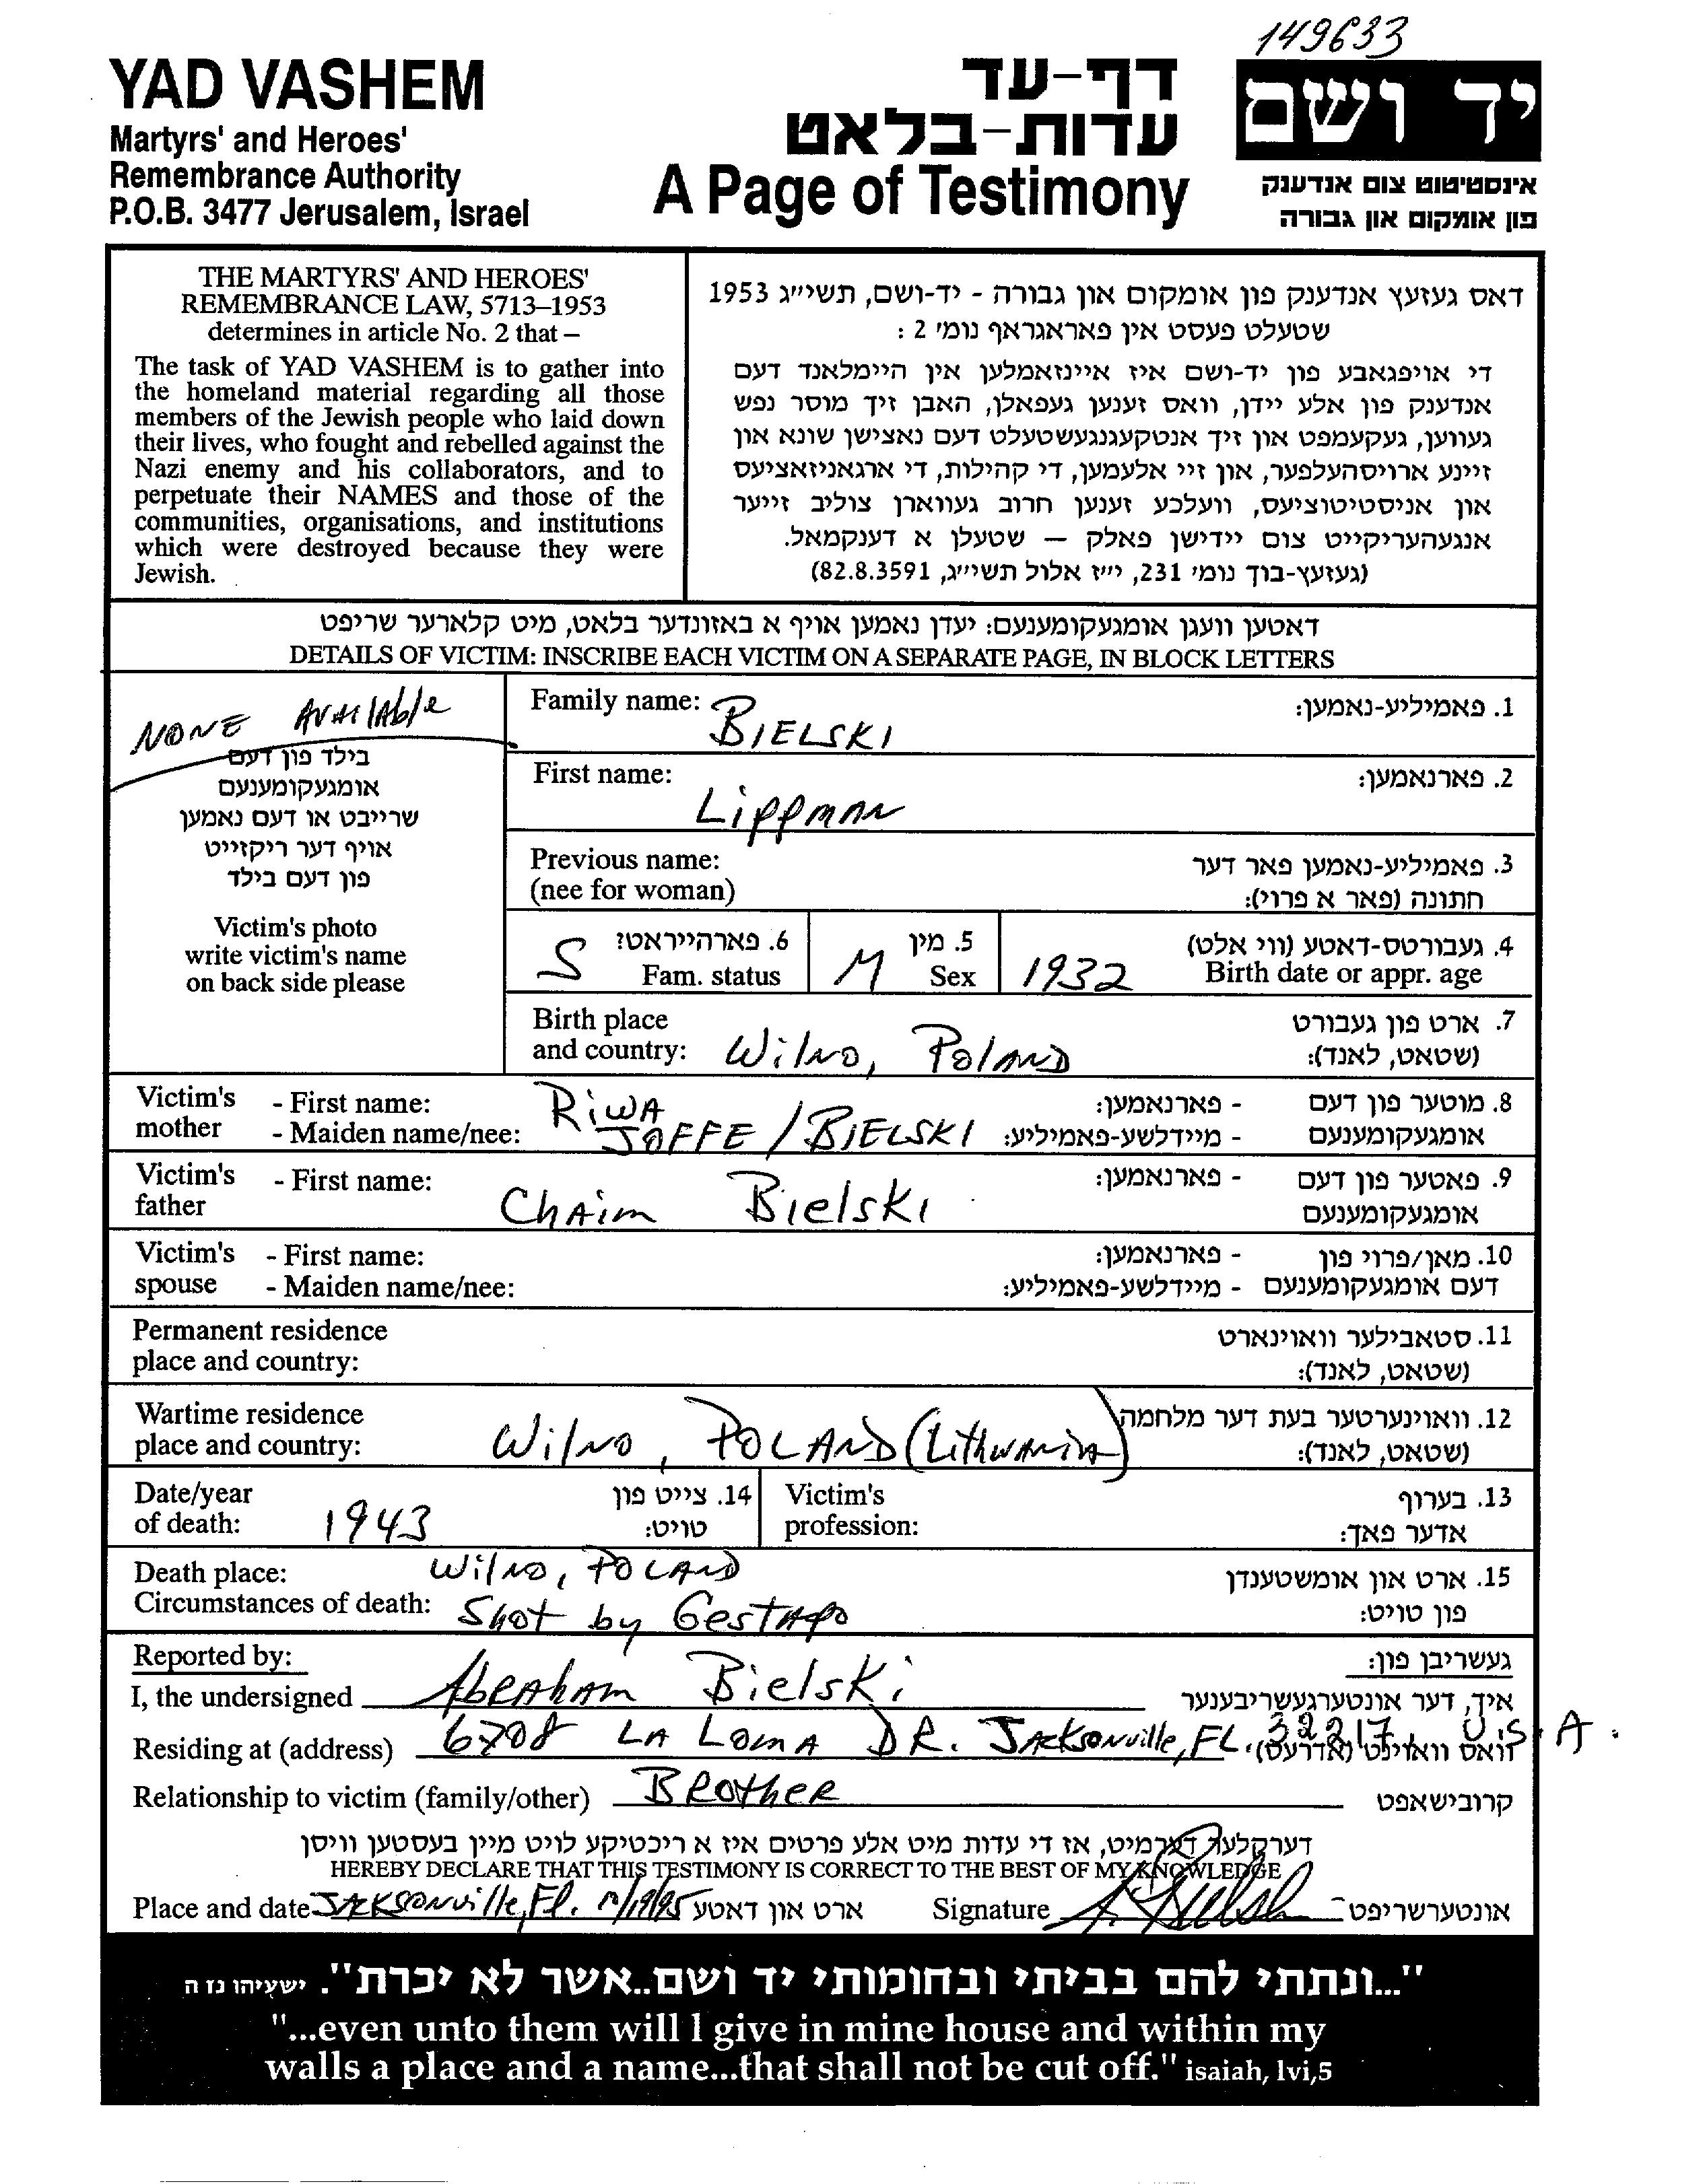 149633
YAD VASHEM
Martyrs' and Heroes'
Remembrance Authority
P.O.B. 3477 Jerusalem, Israel
דף-עד
עדות-בלאט
A Page of Testimony
יד ושם
אינסטיטוט צום אנדענק
פון אומקום און גבורה
THE MARTYRS' AND HEROES'
REMEMBRANCE LAW, 5713–1953
determines in article No. 2 that –
The task of YAD VASHEM is to gather into
the homeland material regarding all those
members of the Jewish people who laid down
their lives, who fought and rebelled against the
Nazi enemy and his collaborators, and to
perpetuate their NAMES and those of the
communities, organisations, and institutions
which were destroyed because they were
Jewish.
דאס געזעץ אנדענק פון אומקום און גבורה - יד-ושם, תשי״ג 1953
שטעלט פעסט אין פאראגראף נומ׳ 2 :
די אויפגאבע פון יד-ושם איז איינזאמלען אין היימלאנד דעם
אנדענק פון אלע יידן, וואס זענען געפאלן, האבן זיך מוסר נפש
געווען, געקעמפט און זיך אנטקעגנגעשטעלט דעם נאצישן שונא און
זיינע ארויסהעלפער, און זיי אלעמען, די קהילות, די ארגאניזאציעס
און אניסטיטוציעס, וועלכע זענען חרוב געווארן צוליב זייער
אנגעהעריקייט צום יידישן פאלק — שטעלן א דענקמאל.
(געזעץ-בוך נומ׳ 231, י״ז אלול תשי״ג, 82.8.3591)
דאטען וועגן אומגעקומענעם: יעדן נאמען אויף א באזונדער בלאט, מיט קלארער שריפט
DETAILS OF VICTIM: INSCRIBE EACH VICTIM ON A SEPARATE PAGE, IN BLOCK LETTERS
NONE AVAILAble
בילד פון דעם
אומגעקומענעם
שרייבט או דעם נאמען
אויף דער ריקזייט
פון דעם בילד
Victim's photo
write victim's name
on back side please
Family name: BIELSKI 1. פאמיליע-נאמען:
First name: Lippman 2. פארנאמען:
Previous name: 3. פאמיליע-נאמען פאר דער
(nee for woman) חתונה (פאר א פרוי):
S 6. פארהייראט? M 5. מין 1932 4. געבורטס-דאטע (ווי אלט)
Fam. status Sex Birth date or appr. age
Birth place 7. ארט פון געבורט
and country: Wilno, Poland (שטאט, לאנד):
Victim's - First name: RiWA - פארנאמען: 8. מוטער פון דעם
mother - Maiden name/nee: JOFFE / BIELSKI - מיידלשע-פאמיליע: אומגעקומענעם
Victim's - First name: ChAim Bielski - פארנאמען: 9. פאטער פון דעם
father אומגעקומענעם
Victim's - First name: - פארנאמען: 10. מאן/פרוי פון
spouse - Maiden name/nee: - מיידלשע-פאמיליע: דעם אומגעקומענעם
Permanent residence 11. סטאבילער וואוינארט
place and country: (שטאט, לאנד):
Wartime residence 12. וואוינערטער בעת דער מלחמה
place and country: Wilno, POLAND (LithuANiA) (שטאט, לאנד):
Date/year 14. צייט פון Victim's 13. בערוף
of death: 1943 טויט: profession: אדער פאך:
Death place: Wilno, POLAND 15. ארט און אומשטענדן
Circumstances of death: Shot by GestApo פון טויט:
Reported by: געשריבן פון:
I, the undersigned AbRAhAm Bielski איך, דער אונטערגעשריבענער
Residing at (address) 6708 LA LomA DR. JAcksonville, FL. 32217, U.S.A. וואס וואוינט (אדרעס)
Relationship to victim (family/other) BRotheR קרובישאפט
דערקלער דערמיט, אז די עדות מיט אלע פרטים איז א ריכטיקע לויט מיין בעסטען וויסן
HEREBY DECLARE THAT THIS TESTIMONY IS CORRECT TO THE BEST OF MY KNOWLEDGE
Place and date JAcksonville, Fl. ארט און דאטע Signature A. Bielski אונטערשריפט
"...ונתתי להם בביתי ובחומותי יד ושם..אשר לא יכרת". ישעיהו נז ה
"...even unto them will I give in mine house and within my
walls a place and a name...that shall not be cut off." isaiah, lvi,5